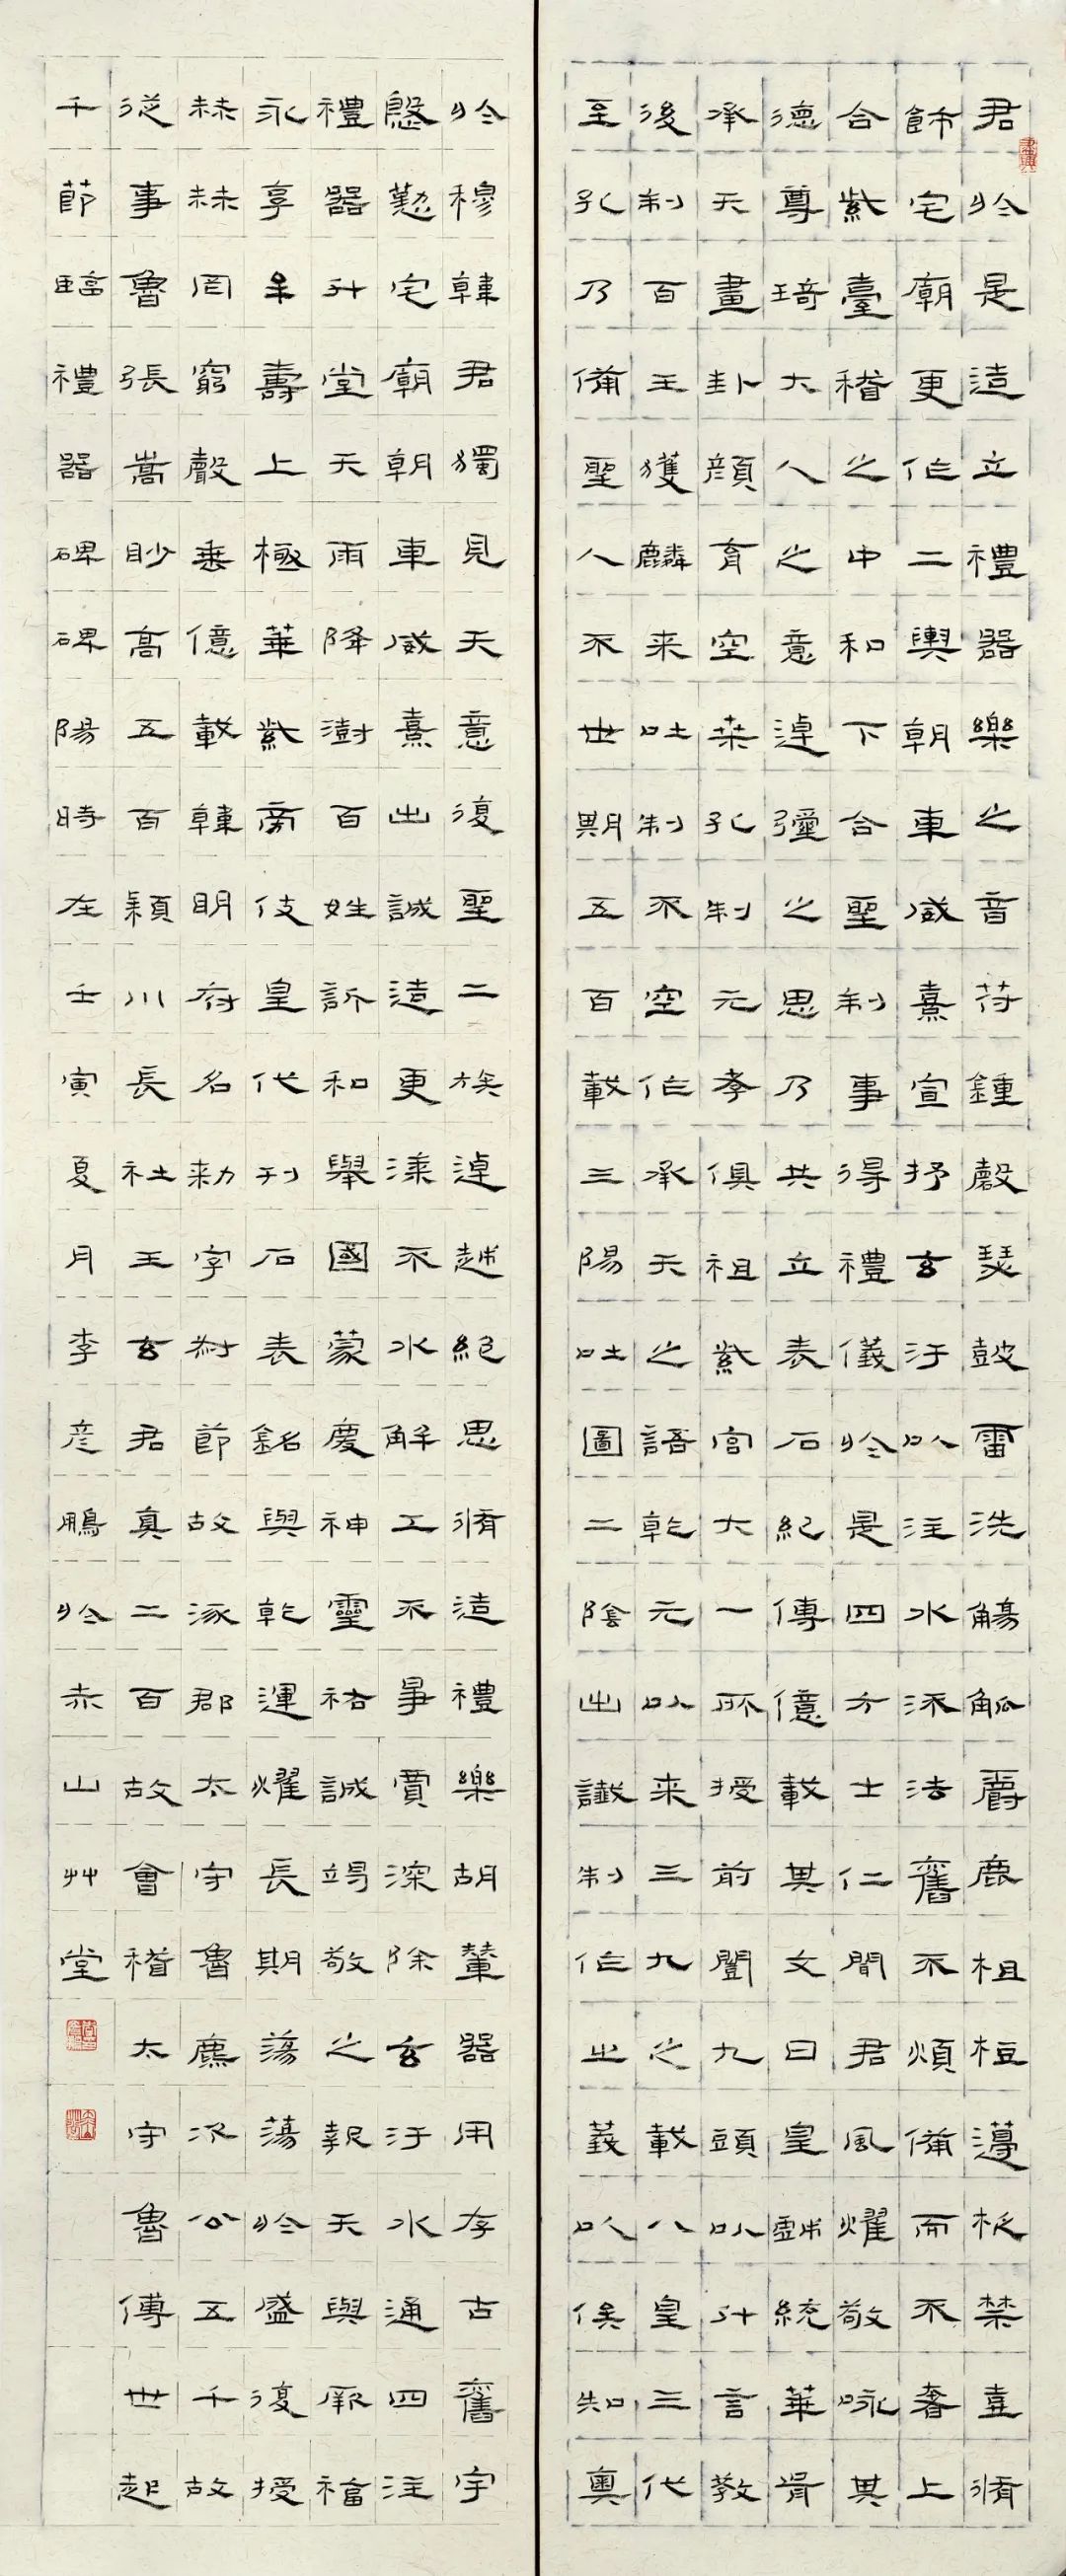 君於是造立禮器樂之音苻鍾磬瑟鼓雷洗觴觚爵鹿柤梪籩柉禁壺脩
飾宅廟更作二輿朝車威熹宣抒玄汙以注水流法舊不煩備而不奢上
合紫臺稽之中和下合聖制事得禮儀於是四方士仁聞君風燿敬咏其
德尊琦大人之意逴彌之思乃共立表石紀傳億載其文曰皇戲統華胥
承天畫卦顏育空桒孔制元孝俱祖紫宮大一所授前闓九頭以什言教
後制百王獲麟来吐制不空作承天之語乾元以来三九之載八皇三代
至孔乃備聖人不世期五百載三陽吐圖二陰出讖制作之義以俟知奧
於穆韓君獨見天意復聖二族逴越絕思脩造禮樂胡輦器用存古舊宇
慇懃宅廟朝車威熹出誠造更漆不水解工不爭賈深除玄汙水通四注
禮器升堂天雨降澍百姓訢和舉國蒙慶神靈祐誠竭敬之報天與厥福
永享牟壽上極華紫旁伎皇代刊石表銘與乾運燿長期蕩蕩於盛復授
赫赫罔窮聲垂億載韓明府名勑字叔節故涿郡太守魯麃次公五千故
從事魯張嵩眇高五百潁川長社王玄君真二百故會稽太守魯傅世起
千節臨禮器碑碑陽時在壬寅夏月李彥鵬於赤山艸堂